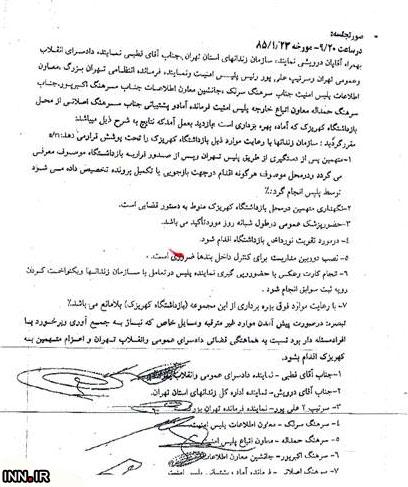 صورتجلسه:
در ساعت ۹/۲۰ - مورخه ۸۵/۱/۲۳
بهمراه آقایان درویشی نماینده سازمان زندانهای استان تهران، جناب آقای قطبی نماینده دادسرای انقلاب
وعمومی تهران وسرتیپ علی پور رئیس پلیس امنیت ونماینده فرمانده انتظامی تهران بزرگ، معاون
اطلاعات پلیس امنیت جناب سرهنگ سرلک، جانشین معاون اطلاعات جناب سرهنگ اکبرپور، جناب
سرهنگ حمداله معاون اتباع خارجه پلیس امنیت فرمانده آمادو پشتیبانی جناب سرهنگ اصلانی از محل
بازداشتگاه کهریزک که آماده بهره برداری است، بازدید بعمل آمد که نتایج به شرح ذیل میباشد
مقررگردید: سازمان زندانها با رعایت موارد ذیل بازداشتگاه کهریزک را تحت پوشش قرار می دهد.
۱- متهمین پس از دستگیری از طریق پلیس تهران وپس از صدور قرار به بازداشتگاه موصوف معرفی
می گردد ودرمحل موصوف هرگونه اقدام درجهت بازجویی یا تکمیل پرونده تخصیص داده می شود
توسط پلیس انجام گردد.
۲- نگهداری متهمین درمحل بازداشتگاه کهریزک منوط به دستور قضایی است.
۳- حضور پزشک عمومی درطول شبانه روز موردتأکید می باشد.
۴- درمورد تقویت نورداخل بازداشتگاه اقدام شود.
۵- نصب دوربین مداربسته برای کنترل داخل بندها ضروری است.
۶- انجام کارت وعکس با حضوروپی گیری نماینده پلیس درتعامل با سازمان زندانها ویکنواخت کردن
رویه ثبت سوابق انجام شود.
۷- با رعایت موارد فوق بهره برداری از این مجموعه (بازداشتگاه کهریزک) بلامانع می باشد.
تبصره: درصورت پیش آمدن موارد غیر مترقبه ومسایل خاص که نیاز به جمع آوری وبرخورد با
افرادمسئله دار بود نسبت به هماهنگی قضائی دادسرای عمومی وانقلاب تهران و اعزام متهمین به
کهریزک اقدام بشود.
۱- جناب آقای قطبی - نماینده دادسرای عمومی وانقلاب
۲- جناب آقای درویش - نماینده اداره کل زندانهای استان تهران.
۳- سرتیپ ۲ علی پور - نماینده فرمانده تهران بزرگ
۴- سرهنگ سرلک - معاون اطلاعات پلیس امنیت
۵- سرهنگ حمداله - معاون اتباع پلیس امنیت
۶- سرهنگ اکبرپور - جانشین معاون اطلاعات
۷- سرهنگ اصلانی - فرمانده آماد و پشتیبانی پلیس
INN.IR